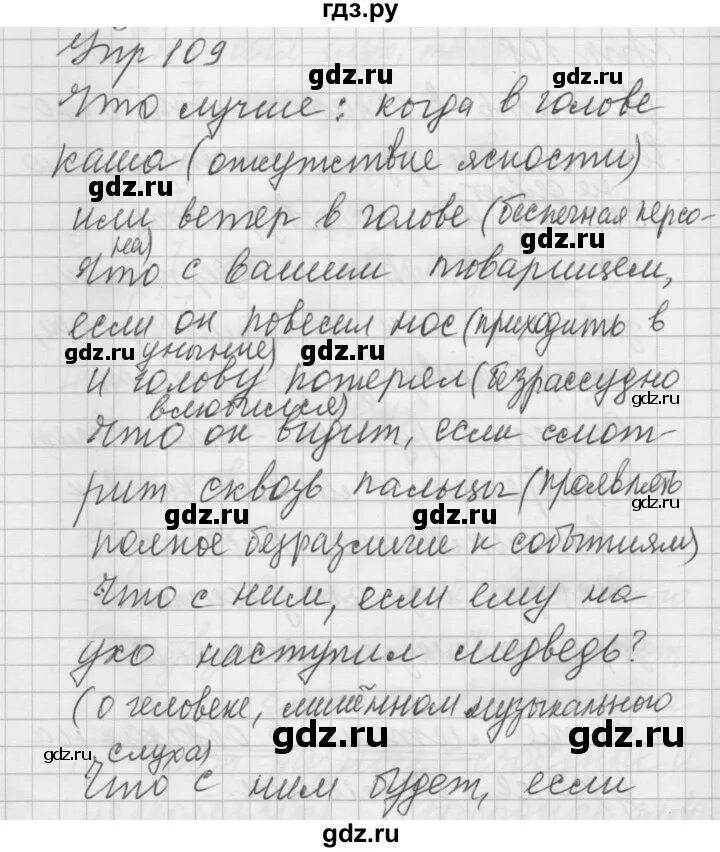 гдз.ру
Упр 109
gdz.ru
Что лучше: когда в голове
каша (отсутствие ясности)
gdz.ru
gdz.ru
или ветер в голове (беспечная персо-
на)
gdz.ru
Что с вашим товарищем,
если он повесил нос (приходить в
gdz.ru
уныние)
gdz.ru
и голову потерял (безрассудно
gdz.ru
влюбился)
Что он видит, если смот-
рит сквозь пальцы (проявлять
gdz.ru
gdz.ru
gdz.ru
полное безразличие к событиям)
Что с ним, если ему на
ухо наступил медведь?
(о человеке, лишённом музыкального
gdz.ru
слуха)
gdz.ru
gdz.ru
Что с ним будет, если
gdz.ru